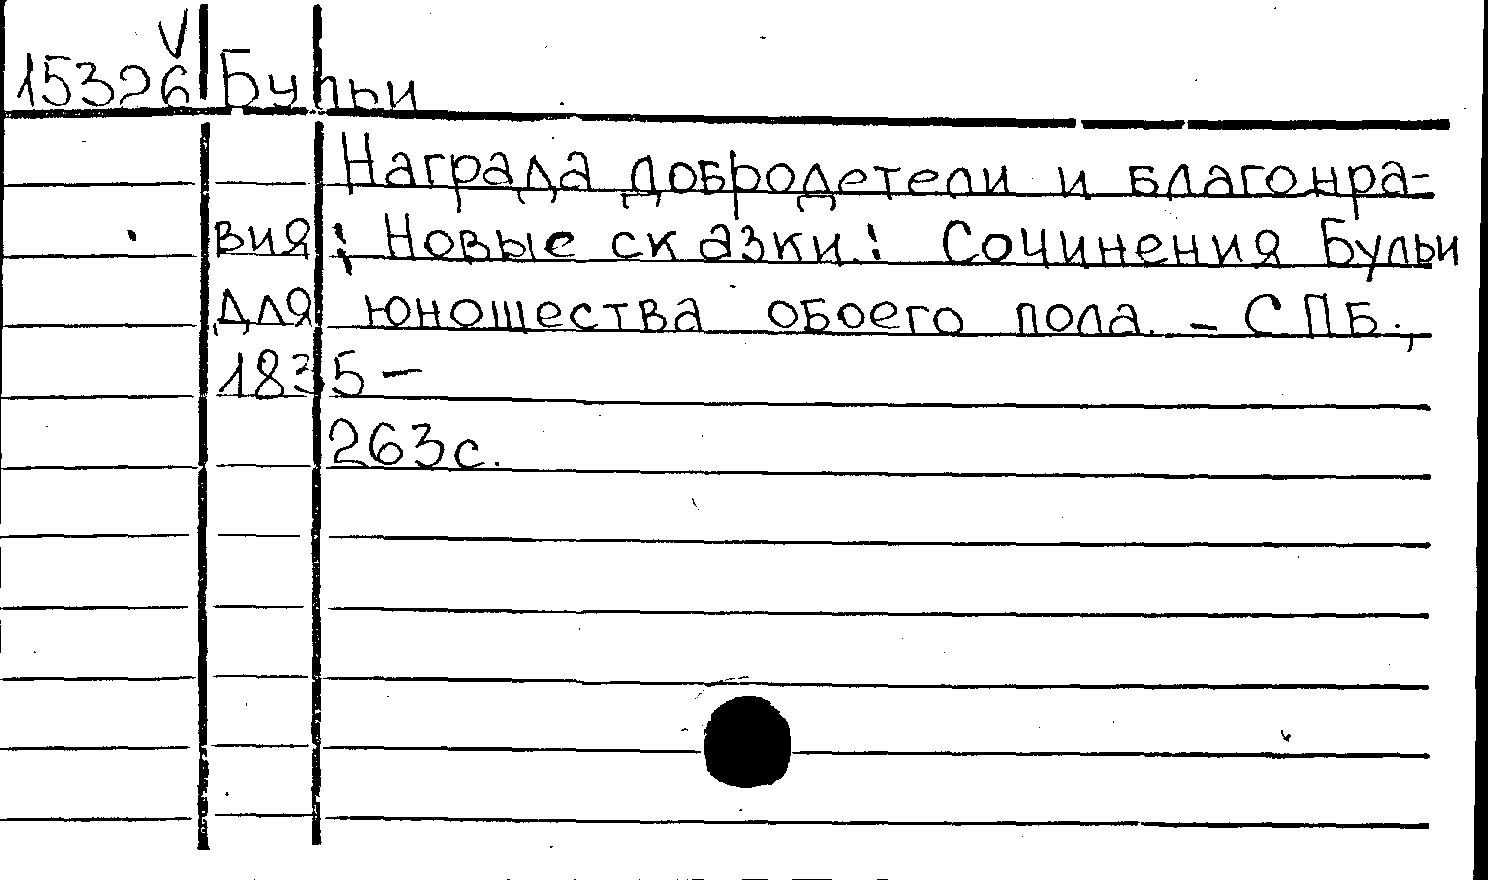 V
15326 Бульи
Награда добродетели и благонра-
вия: Новые сказки: Сочинения Бульи
для юношества обоего пола. - СПБ.,
1835 -
263с.